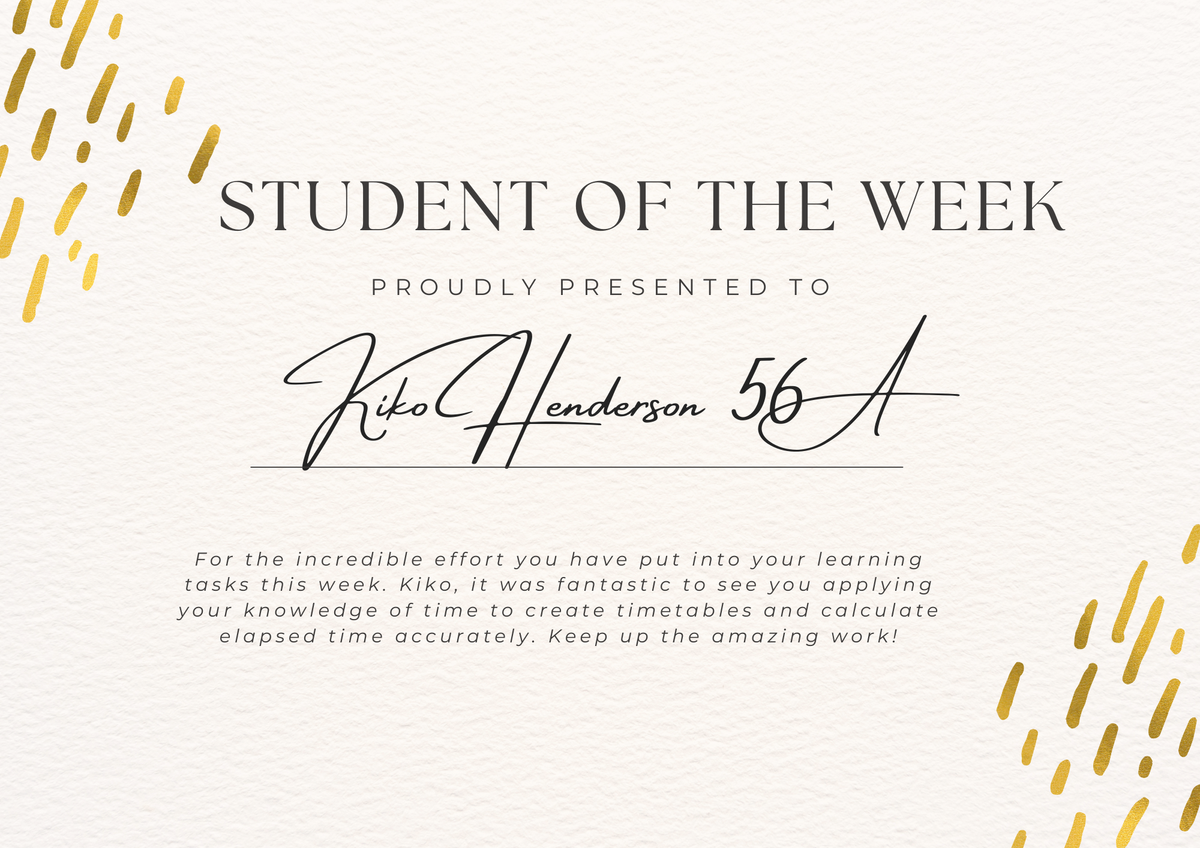 STUDENT OF THE WEEK
PROUDLY PRESENTED TO
Kiko Henderson 56A
For the incredible effort you have put into your learning
tasks this week. Kiko, it was fantastic to see you applying
your knowledge of time to create timetables and calculate
elapsed time accurately. Keep up the amazing work!